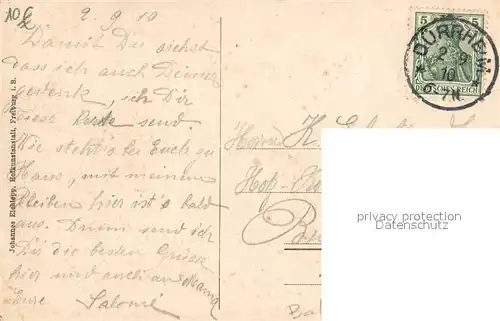 10 €
2.9.10
Damit Du siehst
dass ich auch Deiner
gedenk, ich Dir
diese Karte send.
Wie steht's bei Euch zu
Haus, mit meinem
Bleiben hier ist's bald
aus. Drum send ich
Dir die besten Grüsse
hier und auch an Mama
Eure Salomé
Johannes Elchlepp, Hofkunstanstalt, Freiburg i. B.
5 5
DEUTSCHES REICH
DÜRRHEIM
2 9
10
6-7N.
Herrn K.
Hof-
privacy protection
Datenschutz
Ba